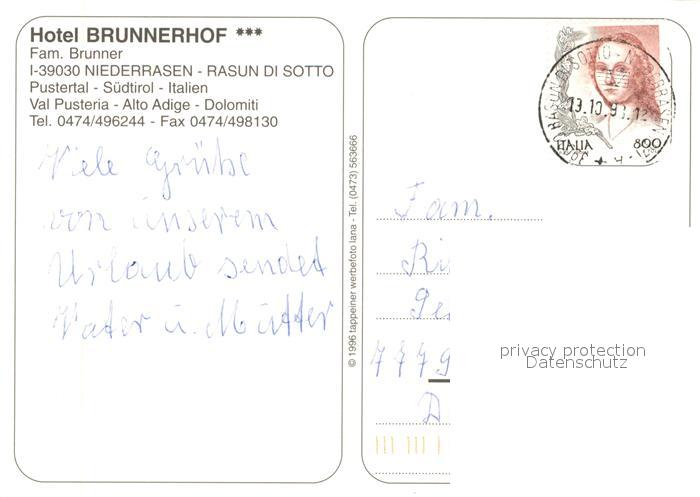 Hotel BRUNNERHOF ***
Fam. Brunner
I-39030 NIEDERRASEN - RASUN DI SOTTO
Pustertal - Südtirol - Italien
Val Pusteria - Alto Adige - Dolomiti
Tel. 0474/496244 - Fax 0474/498130
Viele Grüße
von unserem
Urlaub sendet
Vater u. Mutter
© 1996 tappeiner werbefoto lana - Tel. (0473) 563666
ITALIA 800
Fam.
7779
D
privacy protection
Datenschutz